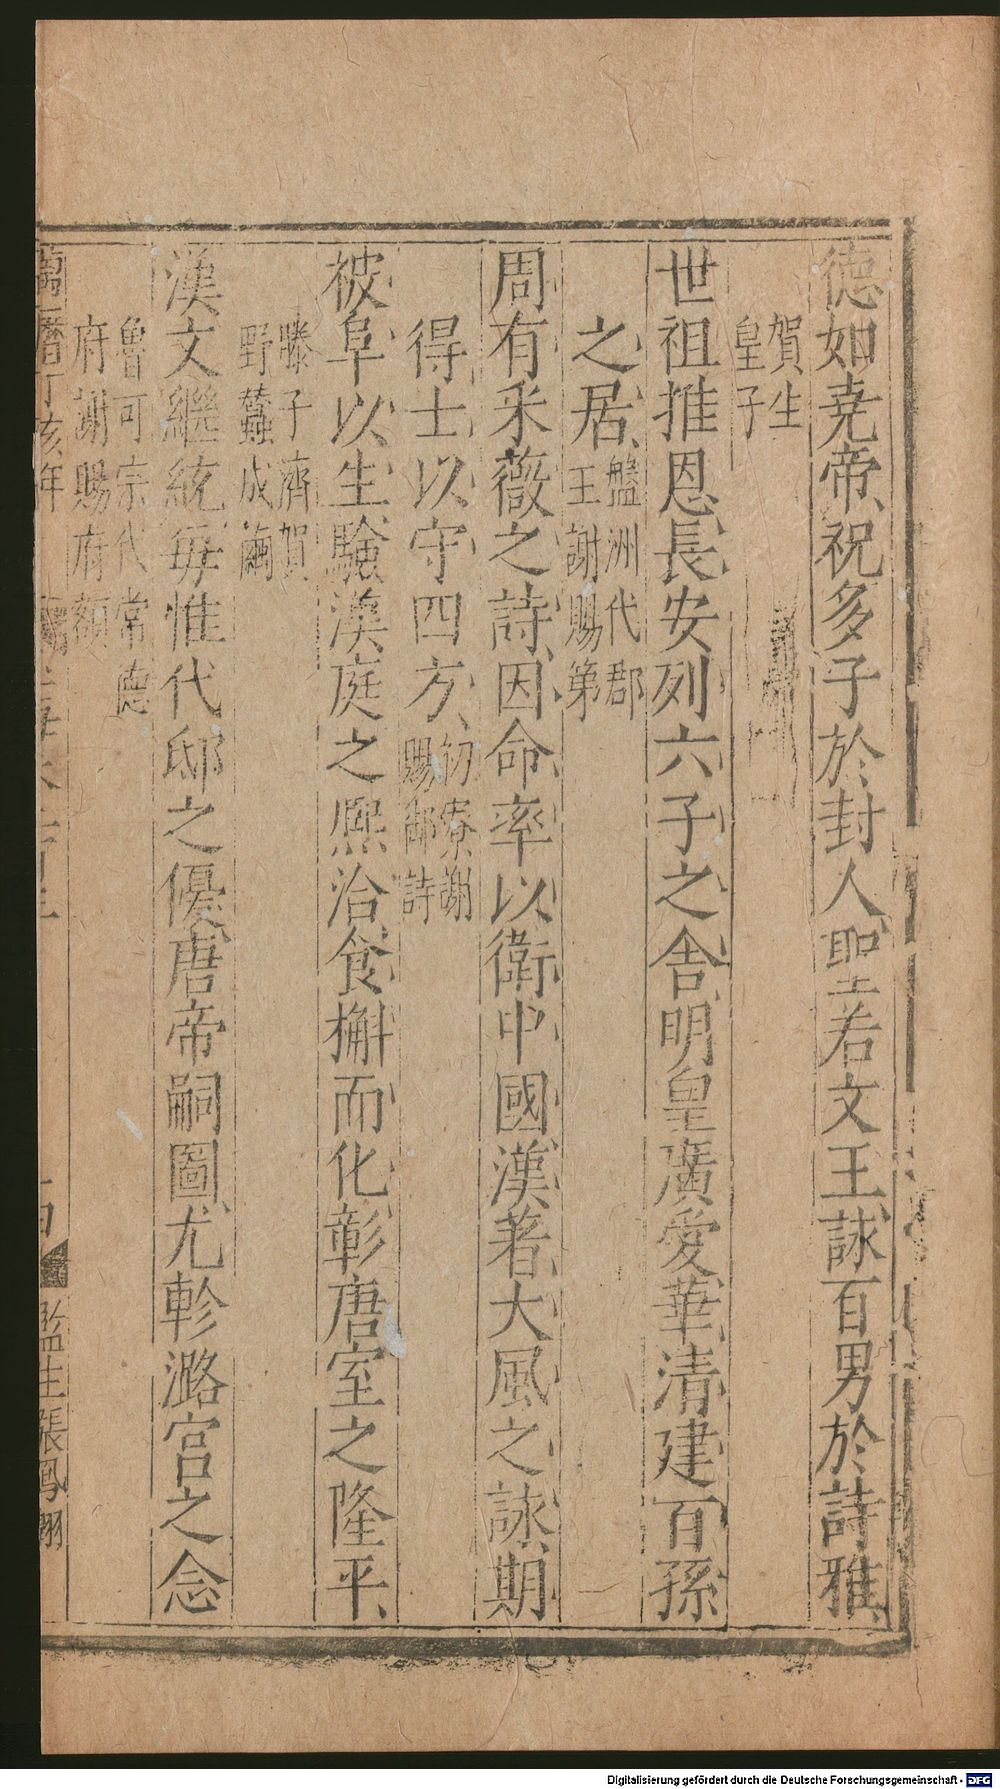 德如尭帝、祝多子於封人、聖若文王、詠百男於詩雅、
賀生
皇子
世祖推恩、長安列六子之舎、明皇廣愛、華清建百孫
之居、
盤洲代郡
王謝賜第
周有釆薇之詩、因命率以衛中國、漢著大風之詠、期
得士以守四方、
初寮謝
賜御詩
被阜以生、驗漢庭之熈洽、食槲而化、彰唐室之隆平、
滕子濟賀
野蠶成繭
漢文繼統、毎惟代邸之優、唐帝嗣圖、尤軫潞宫之念
魯可宗代常德
府謝賜府額
萬曆丁亥年
監生張鳳翔
Digitalisierung gefördert durch die Deutsche Forschungsgemeinschaft - DFG